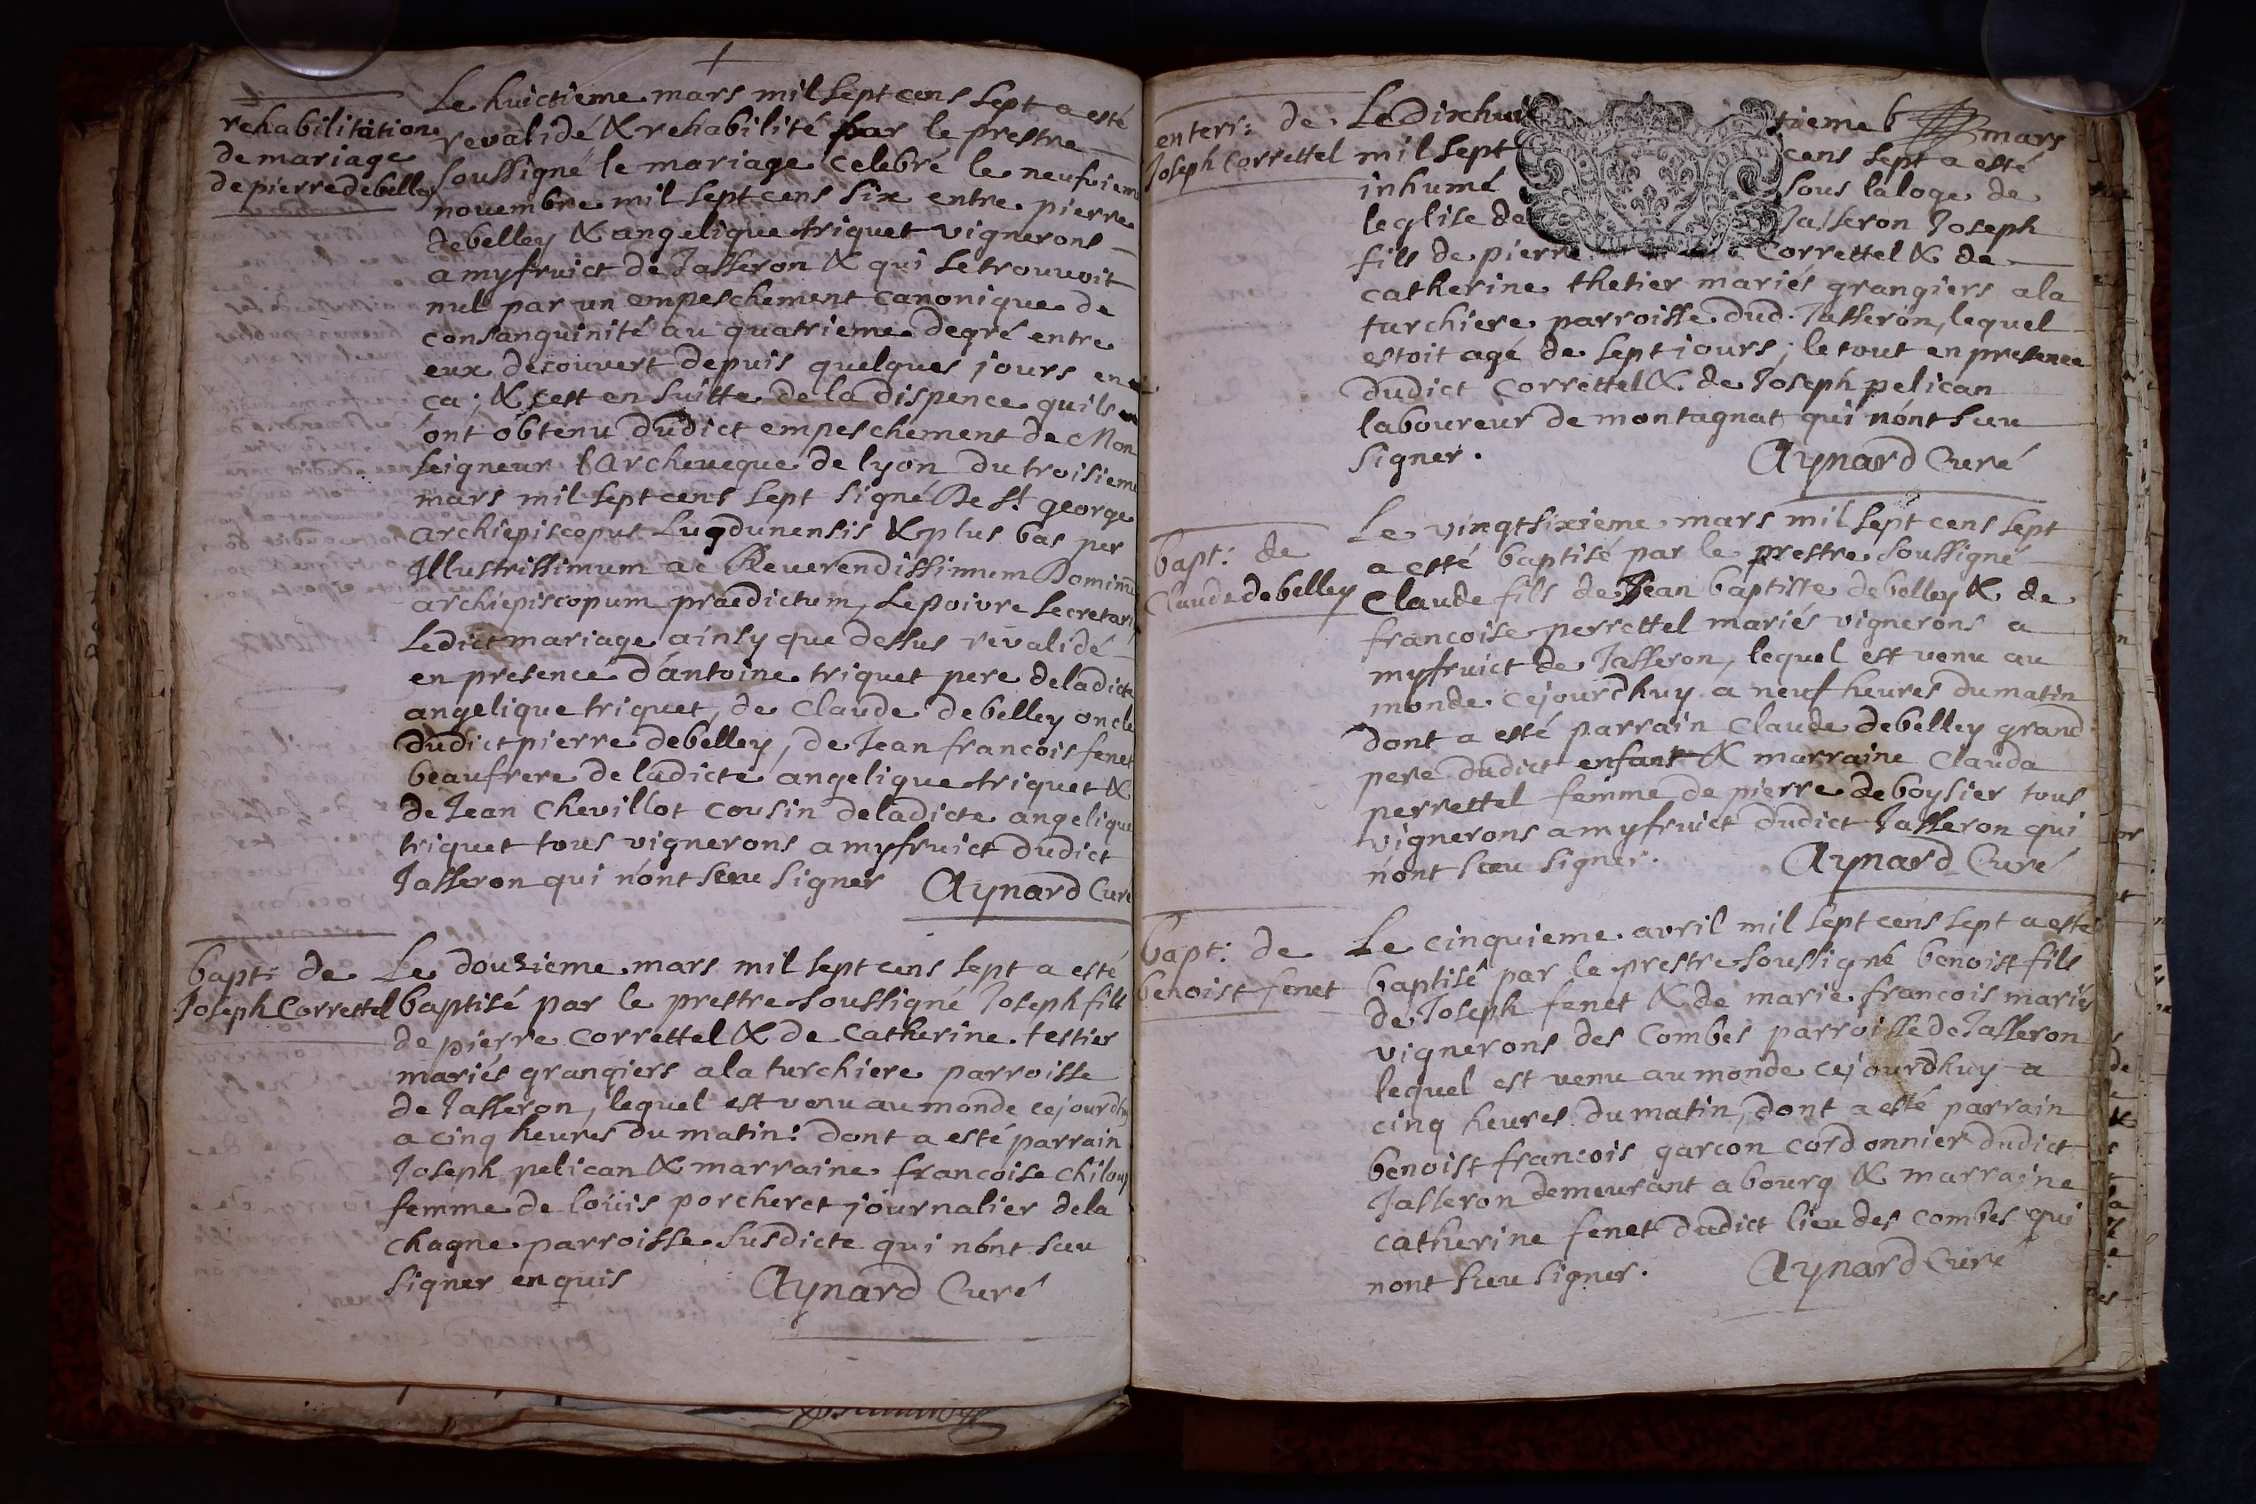 rehabilitation
de mariage
de pierre debelley
Le huictieme mars mil sept cens sept a esté
revalidé & rehabilité par le prestre
soussigné le mariage celebré le neufuieme
nouembre mil sept cens six entre pierre
debelley & angelique triquet vignerons
a myfruict de Jasseron & qui se trouvoit
nul par un empeschement canonique de
consanguinité au quatrieme degré entre
eux decouvert depuis quelques jours en
ca; & cest en suitte de la dispence quils
ont obtenu dudict empeschement de Mon
seigneur l'Archeueque de lyon du troisieme
mars mil sept cens sept signé De St george
archiepiscopus Lugdunensis & plus bas per
Illustrissimum ac Reuerendissimum Dominū
archiepiscopum praedictum, Lepoivre secretari
Ledict mariage ainsy que dessus revalidé
en presence d'antoine triquet pere deladicte
angelique triquet, de Claude debelley oncle
dudict pierre debelley, de Jean francois fenet
beaufrere de ladicte angelique triquet &
de Jean Chevillot cousin deladicte angelique
triquet tous vignerons a myfruict dudict
Jasseron qui nont sceu signer Aynard Curé
bapt: de
Joseph Correttel
Le douzieme mars mil sept cens sept a esté
baptisé par le prestre soussigné Joseph fils
de pierre Correttel & de Catherine testier
mariés grangiers ala turchiere parroisse
de Jasseron, lequel est venu au monde cejourdhuy
a cinq heures du matin: dont a esté parrain
Joseph pelican & marraine francoise Chiloup
femme de loüis porcheret journalier dela
chagne parroisse susdicte qui nont sceu
signer enquis Aynard Curé
enterr: de
Joseph Correttel
Le Dixhuictieme mars
mil sept cens sept a esté
inhumé sous laloge de
leglise de Jasseron Joseph
fils de pierre Correttel & de
catherine thetier mariés grangiers ala
turchiere parroisse dud. Jasseron, lequel
estoit agé de sept jours; le tout en presence
dudict Correttel & de Joseph pelican
laboureur de montagnat qui nont sceu
signer. Aynard Curé
bapt: de
Claude debelley
Le vingtsixieme mars mil sept cens sept
a esté baptisé par le prestre soussigné
Claude fils de Jean baptiste debelley & de
francoise perrettel mariés vignerons a
myfruict de Jasseron, lequel est venu au
monde cejourdhuy a neuf heures du matin
dont a esté parrain Claude debelley grand
pere dudict enfant & marraine Clauda
perrettel femme de pierre deboysier tous
vignerons a myfruict dudict Jasseron qui
nont sceu signer. Aynard Curé
bapt: de
benoist fenet
Le cinquieme avril mil sept cens sept a esté
baptisé par le prestre soussigné benoist fils
de Joseph fenet & de marie francois mariés
vignerons des Combes parroisse de Jasseron
lequel est venu au monde cejourdhuy a
cinq heures du matin, dont a esté parrain
benoist francois garcon cordonnier dudict
Jasseron demeurant a bourg & marraine
catherine fenet dudict lieu des combes qui
nont sceu signer. Aynard Curé